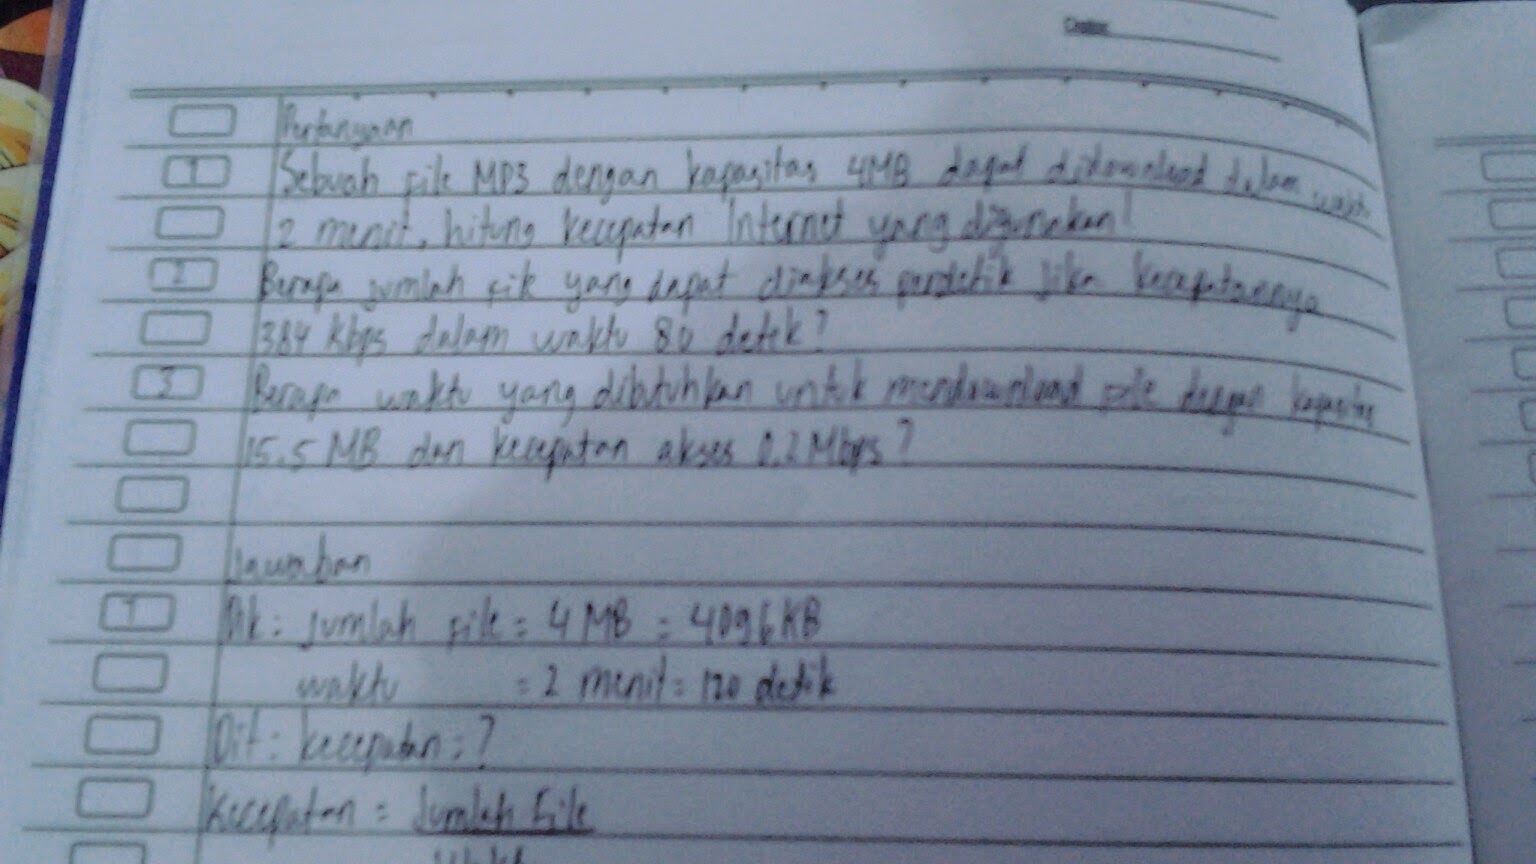 Pertanyaan
1 Sebuah file MP3 dengan kapasitas 4MB dapat didownload dalam waktu
2 menit, hitung kecepatan Internet yang digunakan!
2 Berapa jumlah file yang dapat diakses perdetik jika kecepatannya
384 kbps dalam waktu 80 detik?
3 Berapa waktu yang dibutuhkan untuk mendownload file dengan kapasitas
15.5 MB dan kecepatan akses 0.2 Mbps?
Jawaban
1 Dik: jumlah file = 4 MB = 4096 KB
waktu = 2 menit = 120 detik
Dit: kecepatan = ?
Kecepatan = Jumlah File